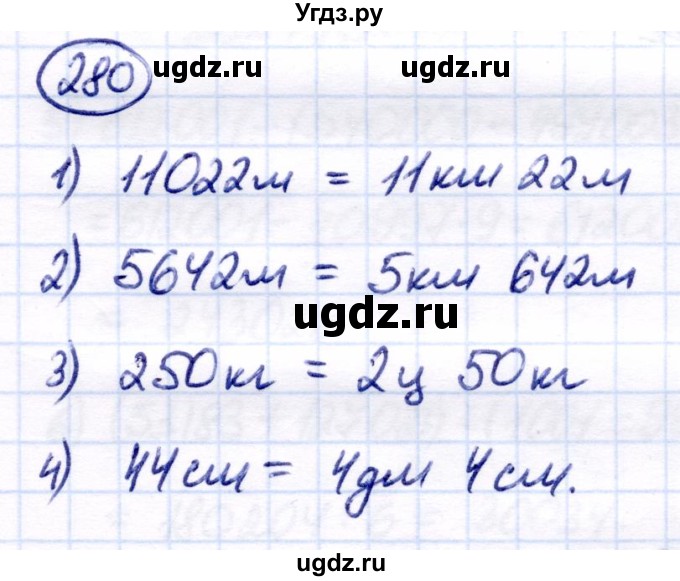 Угдз.ру
280
ugdz.ru ugdz.ru
1) 11022м = 11км 22м
2) 5642м = 5км 642м
ugdz.ru
3) 250кг = 2ц 50кг
4) 44см = 4дм 4см.
ugdz.ru